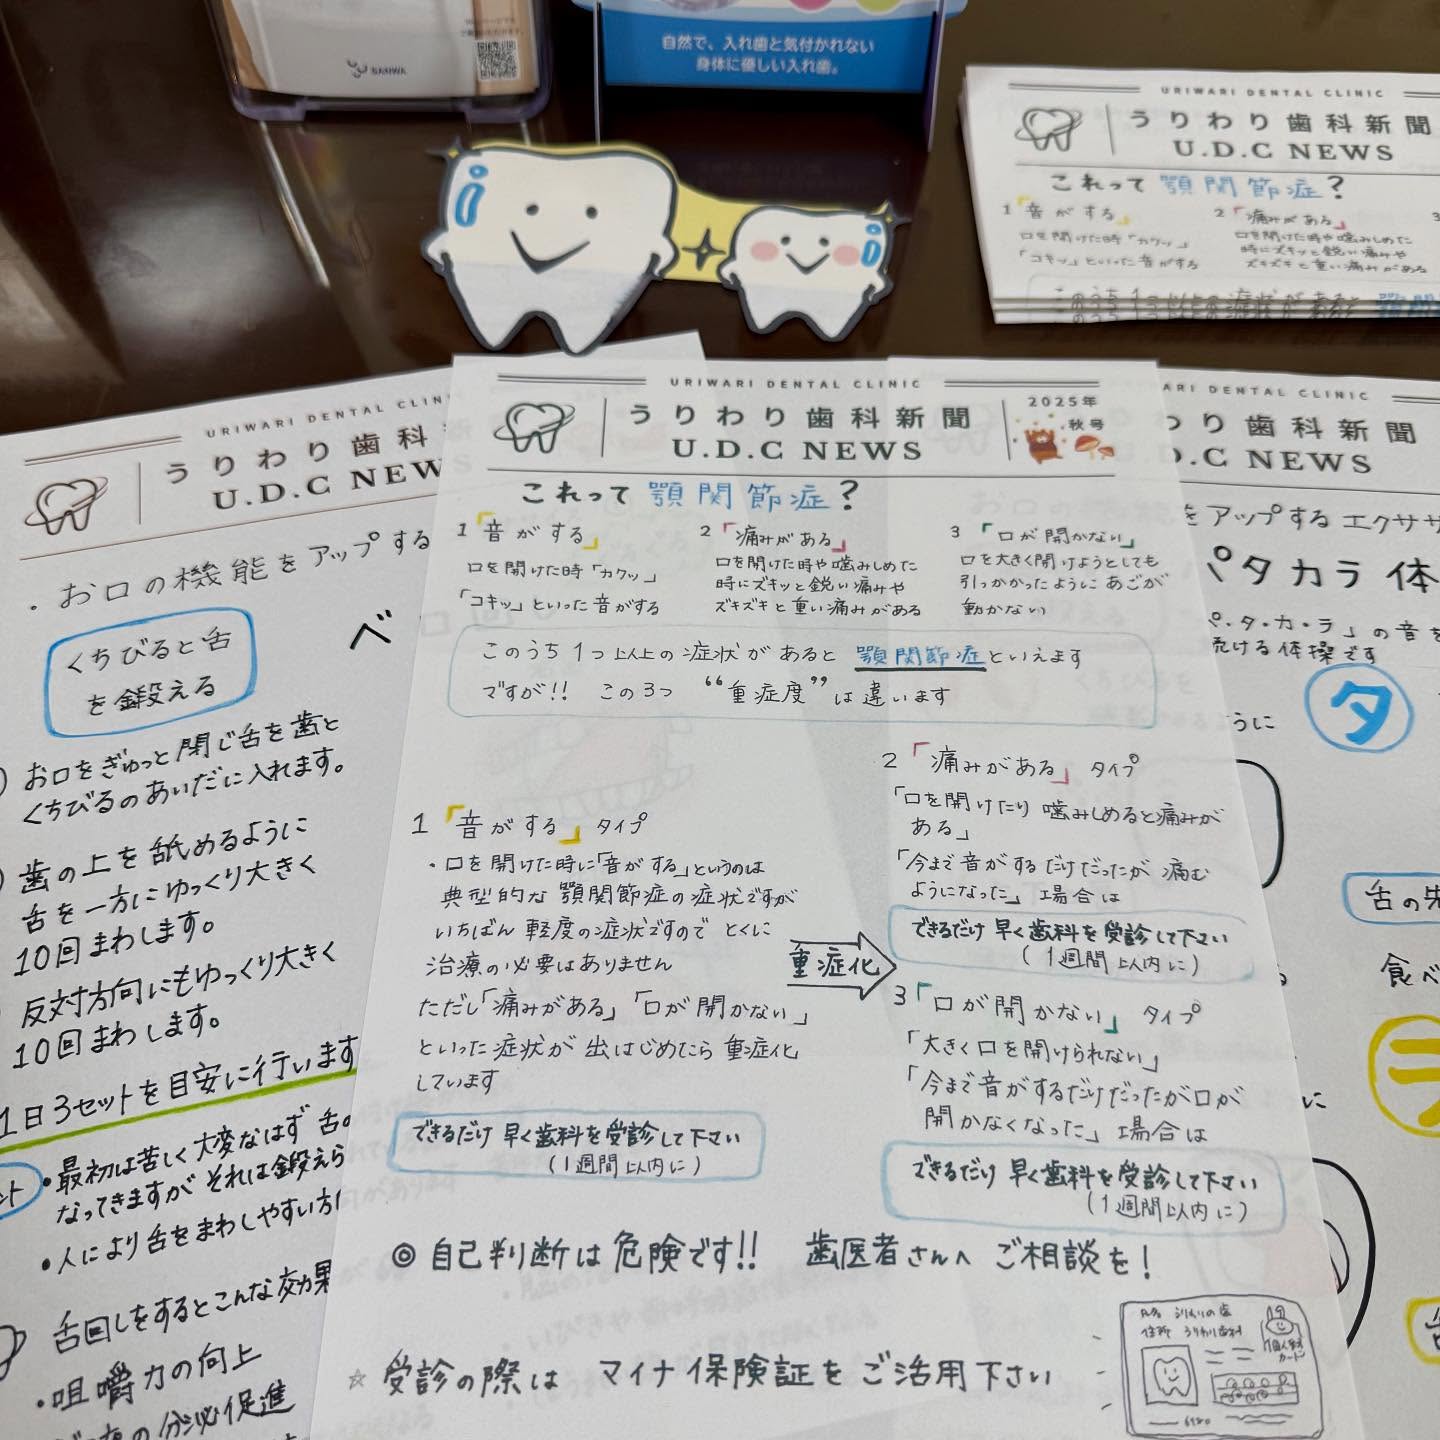 SANWA
自然で、入れ歯と気付かれない
身体に優しい入れ歯。
URIWARI DENTAL CLINIC
うりわり歯科新聞
U.D.C NEWS
これって 顎関節症?
1「音がする」
口を開けた時「カクッ」
「コキッ」といった音がする
2「痛みがある」
口を開けた時や噛みしめた
時にズキッと鋭い痛みや
ズキズキと重い痛みがある
3
このうち1つ以上の症状があると 顎関節症
URIWARI DENTAL CLIN
うりわり歯科
U.D.C NEW
・お口の機能をアップする
べ
くちびると舌
を鍛える
お口をぎゅっと閉じ舌を歯と
くちびるのあいだに入れます。
歯の上を舐めるように
舌を一方にゆっくり大きく
10回まわします。
反対方向にもゆっくり大きく
10回まわします。
1日3セットを目安に行います
ント
・最初は苦しく大変なはず 舌の
なってきますが それは鍛えら
・人により舌をまわしやすい方
舌回しをするとこんな効果
・咀嚼力の向上
の分泌促進
URIWARI DENTAL CLINIC
うりわり歯科新聞
U.D.C NEWS
2025年
秋号
これって 顎関節症?
1「音がする」
口を開けた時「カクッ」
「コキッ」といった音がする
2「痛みがある」
口を開けた時や噛みしめた
時にズキッと鋭い痛みや
ズキズキと重い痛みがある
3「口が開かない」
口を大きく開けようとしても
引っかかったようにあごが
動かない
このうち1つ以上の症状があると 顎関節症といえます
ですが!! この3つ “重症度”は違います
1「音がする」タイプ
・口を開けた時に「音がする」というのは
典型的な顎関節症の症状ですが
いちばん軽度の症状ですので とくに
治療の必要はありません
ただし「痛みがある」「口が開かない」
といった症状が出はじめたら重症化
しています
できるだけ早く歯科を受診して下さい
(1週間以内に)
重症化
2「痛みがある」タイプ
「口を開けたり噛みしめると痛みが
ある」
「今まで音がするだけだったが痛む
ようになった」場合は
できるだけ早く歯科を受診して下さい
(1週間以内に)
3「口が開かない」タイプ
「大きく口を開けられない」
「今まで音がするだけだったが口が
開かなくなった」場合は
できるだけ早く歯科を受診して下さい
(1週間以内に)
◎自己判断は危険です!! 歯医者さんへご相談を!
☆受診の際は マイナ保険証をご活用下さい
氏名 うりわりの歯
住所 うりわり歯科
個人番号
カード
ARI DENTAL CLINIC
わり歯科新聞
D.C NEWS
をアップするエクササ
パタカラ体
パ・タ・カ・ラ」の音を
続ける体操です
ように
タ
舌の先
食べ
ラ
に